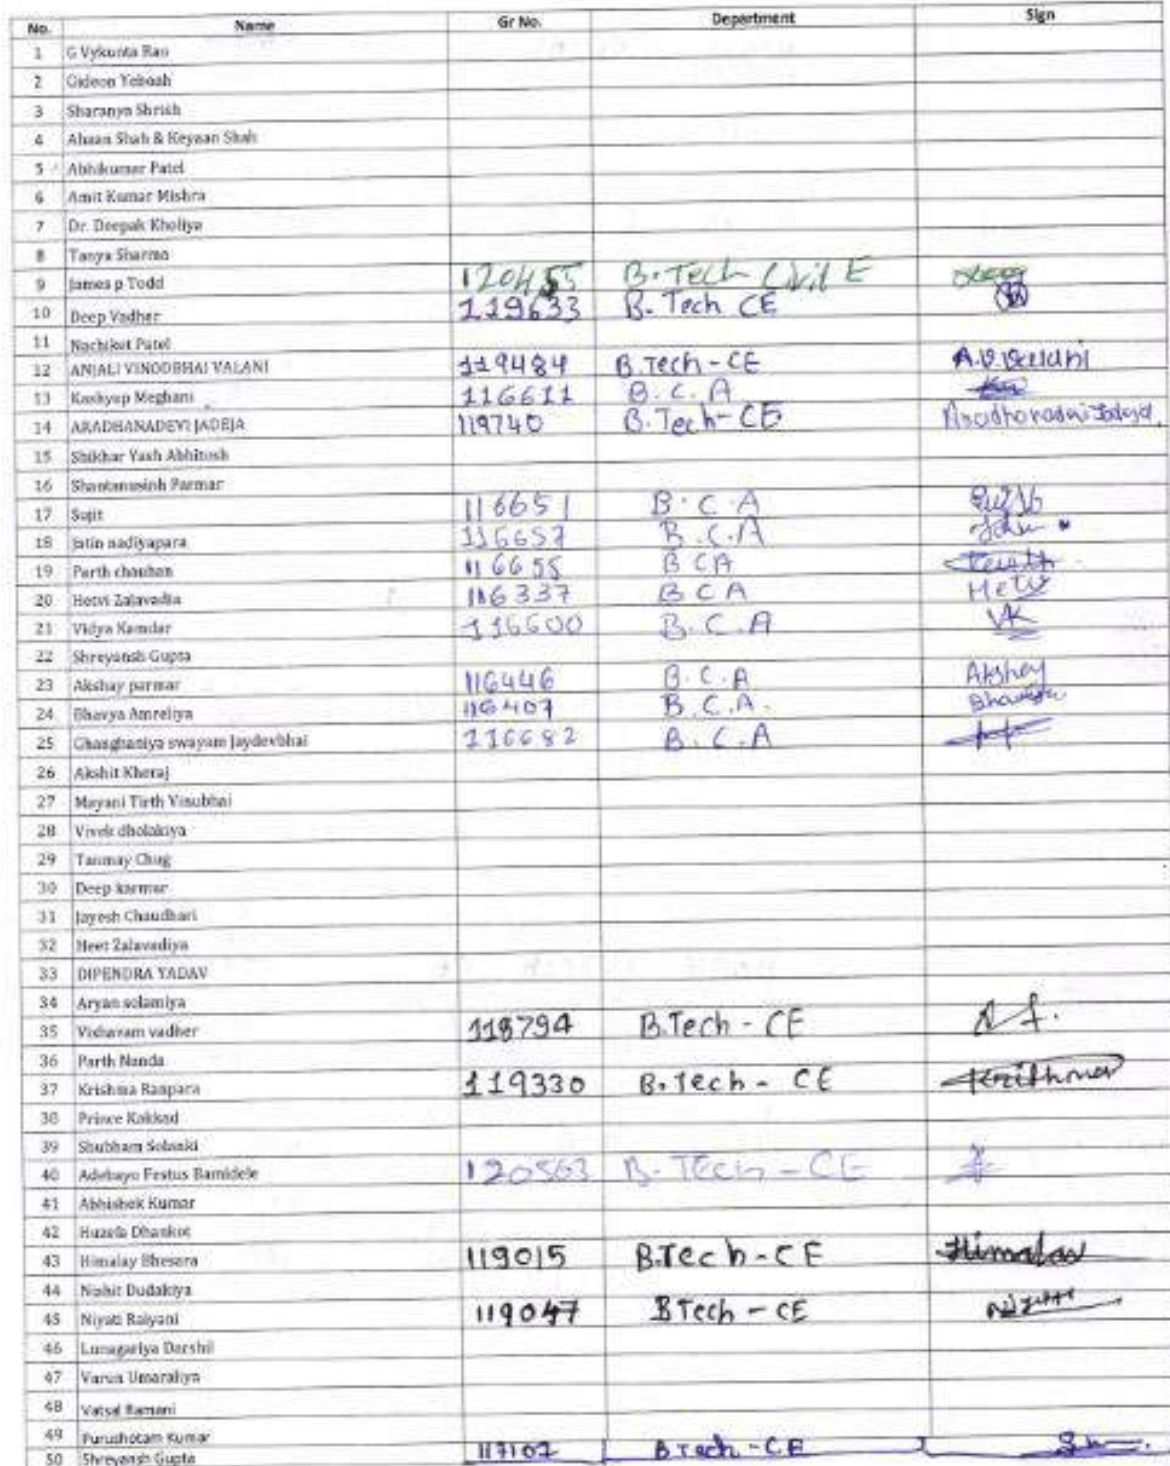 No. Name Gr No. Department Sign
1 G Vykunta Rao
2 Gideon Yeboah
3 Sharanya Shrish
4 Ahaan Shah & Keyaan Shah
5 Abhikumar Patel
6 Amit Kumar Mishra
7 Dr. Deepak Kholiya
8 Tanya Sharma
9 James p Todd 120455 B.Tech Civil E
10 Deep Vadher 119633 B.Tech CE
11 Nachiket Patel
12 ANJALI VINODBHAI VALANI 119484 B.Tech-CE A.V.Valani
13 Kashyap Meghani 116611 B.C.A
14 ARADHANADEVI JADEJA 119740 B.Tech-CE
15 Shikhar Yash Abhitosh
16 Shantanusinh Parmar
17 Sujit 116651 B.C.A
18 Jatin nadiyapara 116657 B.C.A
19 Parth chauhan 116655 BCA
20 Hetvi Zalavadia 116337 BCA
21 Vidya Kamdar 116600 B.C.A VK
22 Shreyansh Gupta
23 Akshay parmar 116446 B.C.A Akshay
24 Bhavya Amreliya 116407 B.C.A.
25 Ghanghaniya swayam Jaydevbhai 116682 B.C.A
26 Akshit Kheraj
27 Mayani Tirth Vinubhai
28 Vivek dholakiya
29 Tanmay Chug
30 Deep karmur
31 Jayesh Chaudhari
32 Heet Zalavadiya
33 DIPENDRA YADAV
34 Aryan solamiya
35 Vishavam vadher 118794 B.Tech - CE
36 Parth Nanda
37 Krishma Ranpara 119330 B.Tech - CE
38 Prince Kakkad
39 Shubham Solanki
40 Adebayo Festus Bamidele 120563 B-TEch - CE
41 Abhishek Kumar
42 Huzefa Dhankot
43 Himalay Bhesara 119015 B.Tech-CE
44 Nishit Dudakiya
45 Niyati Raiyani 119047 BTech - CE
46 Lunagariya Darshil
47 Varun Umaraliya
48 Vatsal Ramani
49 Purushotam Kumar
50 Shreyansh Gupta 117102 B.Tech-CE